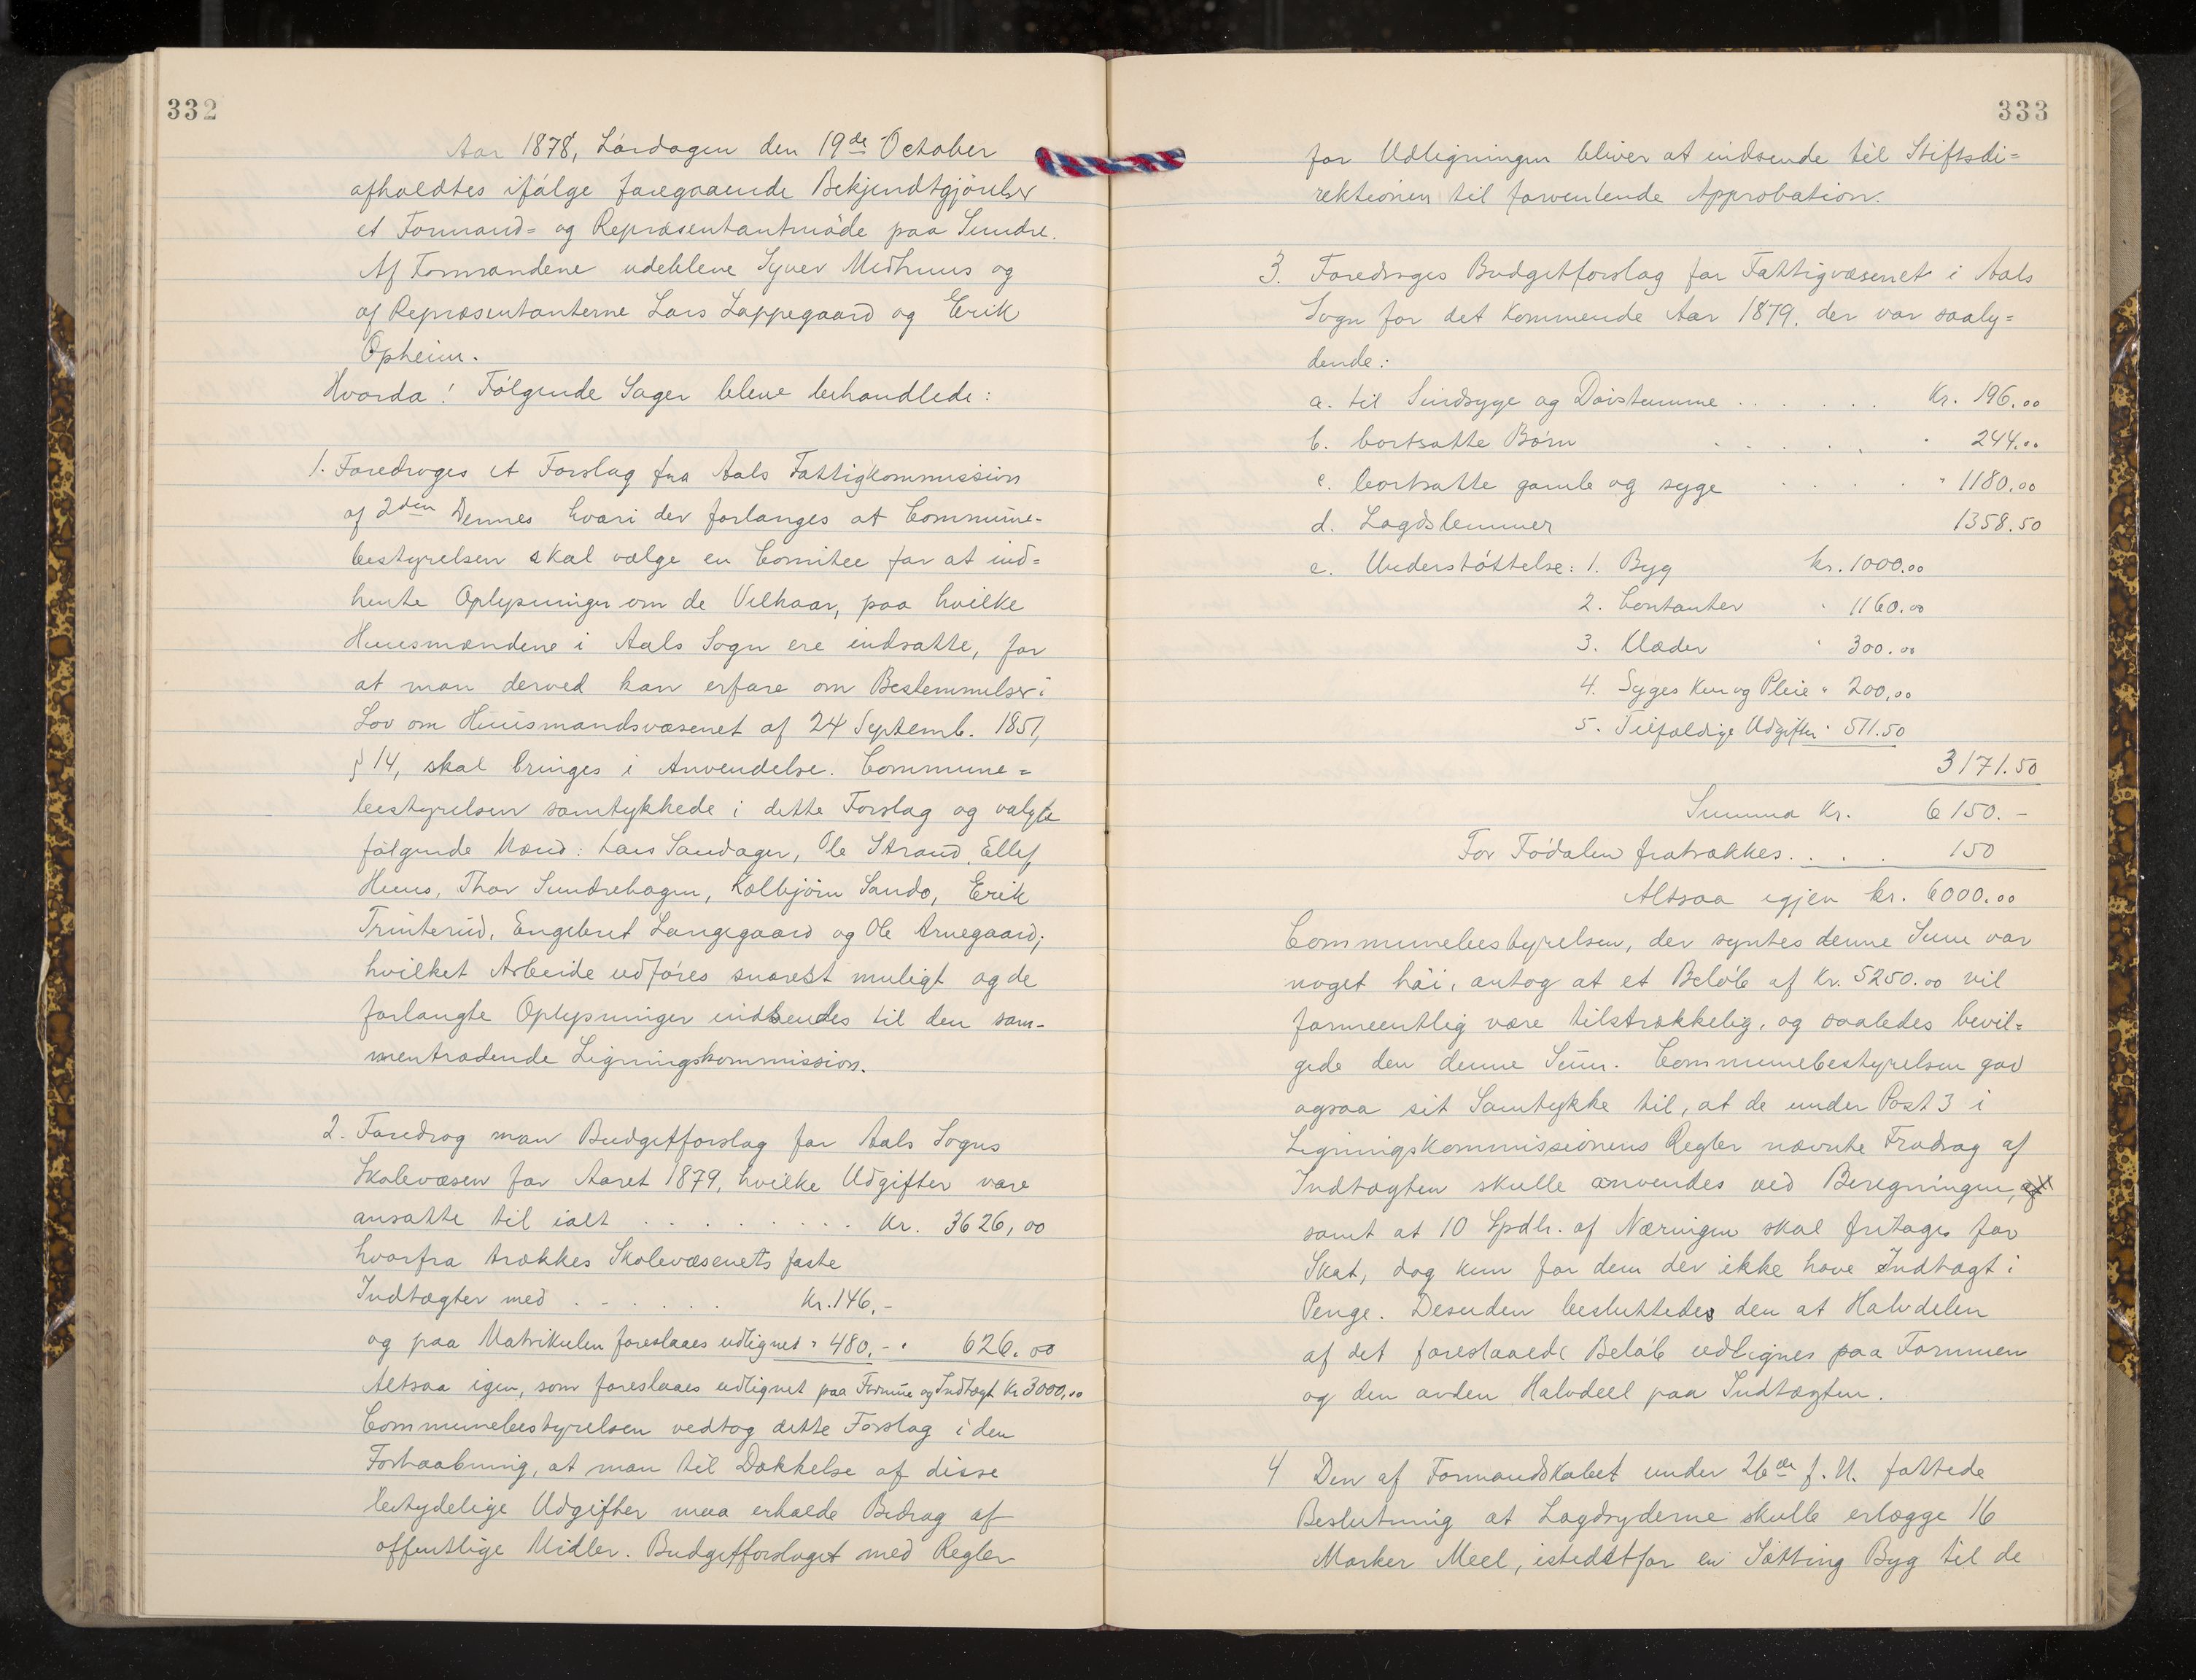 332
Aar 1878, Lördagen den 19de October
afholdtes ifölge foregaaende Bekjendtgjörelse
et Formand= og Repræsentantmöde paa Sundre.
Af Formændene udebleve Syver Medhuus og
af Repræsentanterne Lars Lappegaard og Erik
Opheim.
Hvorda! Fölgende Sager bleve behandlede:
1. Foredroges et Forslag fra Aals Fattigkommission
af 2den Dennes hvori der forlanges at Commune-
bestyrelsen skal vælge en Comitee for at ind=
hente Oplysninger om de Vilkaar, paa hvilke
Huusmændene i Aals Sogn ere indsatte, for
at man derved kan erfare om Bestemmelser i
Lov om Huusmandsvæsenet af 24 Septemb. 1851,
§ 14, skal bringes i Anvendelse. Commune=
bestyrelsen samtykkede i dette Forslag og valgte
fölgende Mænd: Lars Sandager, Ole Strand, Ellef
Huus, Thor Sundrehagen, Kolbjörn Sando, Erik
Trinterud, Engebret Langegaard og Ole Arnegaard;
hvilket Arbeide udföres snarest muligt og de
forlangte Oplysninger indsendes til den sam-
mentrædende Ligningskommission.
2. Foredrog man Budgetforslag for Aals Sogns
Skolevæsen for Aaret 1879, hvilke Udgifter vare
ansatte til ialt . . . . . . . . . Kr. 3626,00
hvorfra trækkes Skolevæsenets faste
Indtægter med . . . . . . Kr. 146,-
og paa Matrikulen foreslaaes udlignet " 480.- " 626.00
Altsaa igjen, som foreslaaes udlignet paa Formue og Indtægt Kr 3000,00
Communebestyrelsen vedtog dette Forslag i den
Forhaabning, at man til Dækkelse af disse
betydelige Udgifter maa erholde Bidrag af
offentlige Midler. Budgetforslaget med Regler
333
for Udligningen bliver at indsende til Stiftsdi=
rektionen til forventende Approbation.
3. Foredroges Budgetforslag for Fattigvæsenet i Aals
Sogn for det kommende Aar 1879. der var saaly=
dende:
a. til Sindsyge og Dövstumme . . . . . . Kr. 196.00
b. bortsatte Börn . . . . . 244.00
c. bortsatte gamle og syge . . . . . " 1180.00
d. Lægdslemmer 1358.50
e. Understöttelse: 1. Byg kr. 1000.00
2. Contanter " 1160.00
3. Klæder " 300.00
4. Syges Kur og Pleie " 200,00
5. Tilfældige Udgifter " 511.50
3171.50
Summa Kr. 6150.-
For Födalen fratrækkes. . . . 150
Altsaa igjen kr. 6000.00
Communebestyrelsen, der syntes denne Sum var
noget höi, antog at et Belöb af Kr. 5250.00 vil
formeentlig være tilstrækkelig, og saaledes bevil=
gede den denne Sum. Communebestyrelsen gav
ogsaa sit Samtykke til, at de under Post 3 i
Ligningskommissionens Regler nævnte Fradrag af
Indtægten skulle anvendes ved Beregningen,
samt at 10 Spdlr. af Næringen skal fritages for
Skat, dog kun for dem der ikke have Indtægt i
Penge. Desuden besluttedes den at Halvdelen
af det foreslaaede Belöb udlignes paa Formuen
og den anden Halvdeel paa Indtægten.
4 Den af Formandskabet under 26de f. M. fattede
Beslutning at Lægdsyderne skulle erlægge 16
Marker Meel, istedetfor en Sætting Byg til de